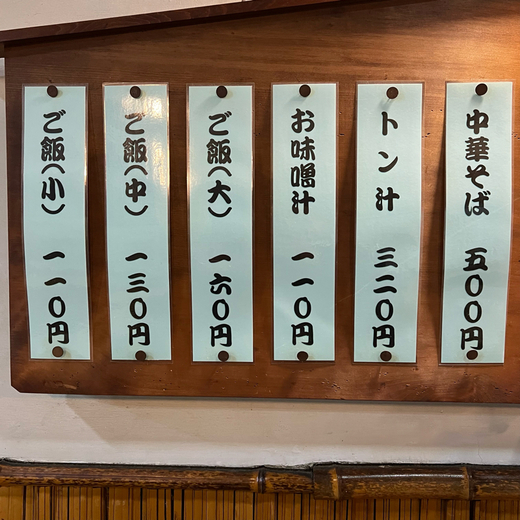 中華そば 五〇〇円
トン汁 三二〇円
お味噌汁 一一〇円
ご飯(大) 一六〇円
ご飯(中) 一三〇円
ご飯(小) 一一〇円